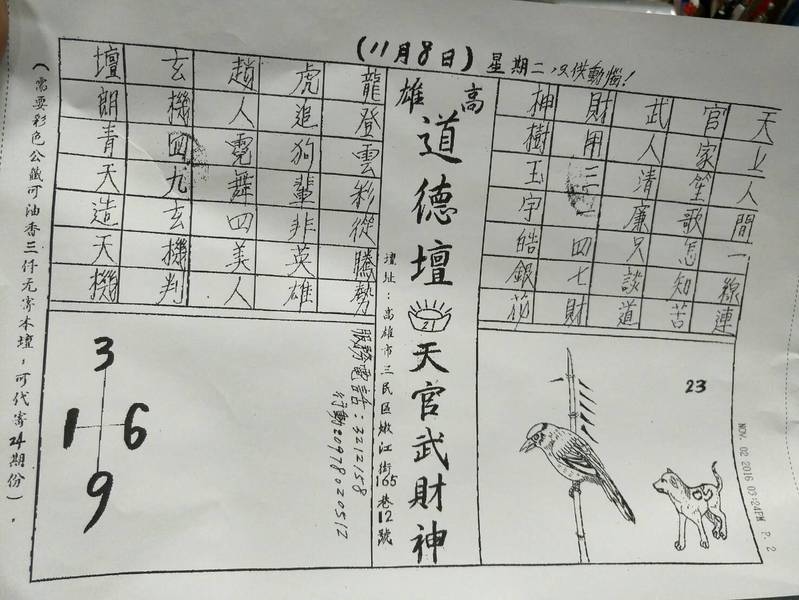 (11月8日) 星期二,只供動惱!
天上人間一線連
官家笙歌怎知苦
武人清廉只談道
財用三四七財
神樹玉宇皓銀花
23
高雄
道德壇
21
天官武財神
壇址:高雄市三民區嫩江街165巷12號
龍登雲彩從騰勢
虎追狗輩非英雄
趙人霓舞四美人
玄機四九玄機判
壇朗青天造天機
服務電話:3212158
行動:0978020512
3
1 6
9
(需要彩色公籤可油香三仟元寄本壇,可代寄24期份).
NOV. 02 2016 03:24PM P. 2